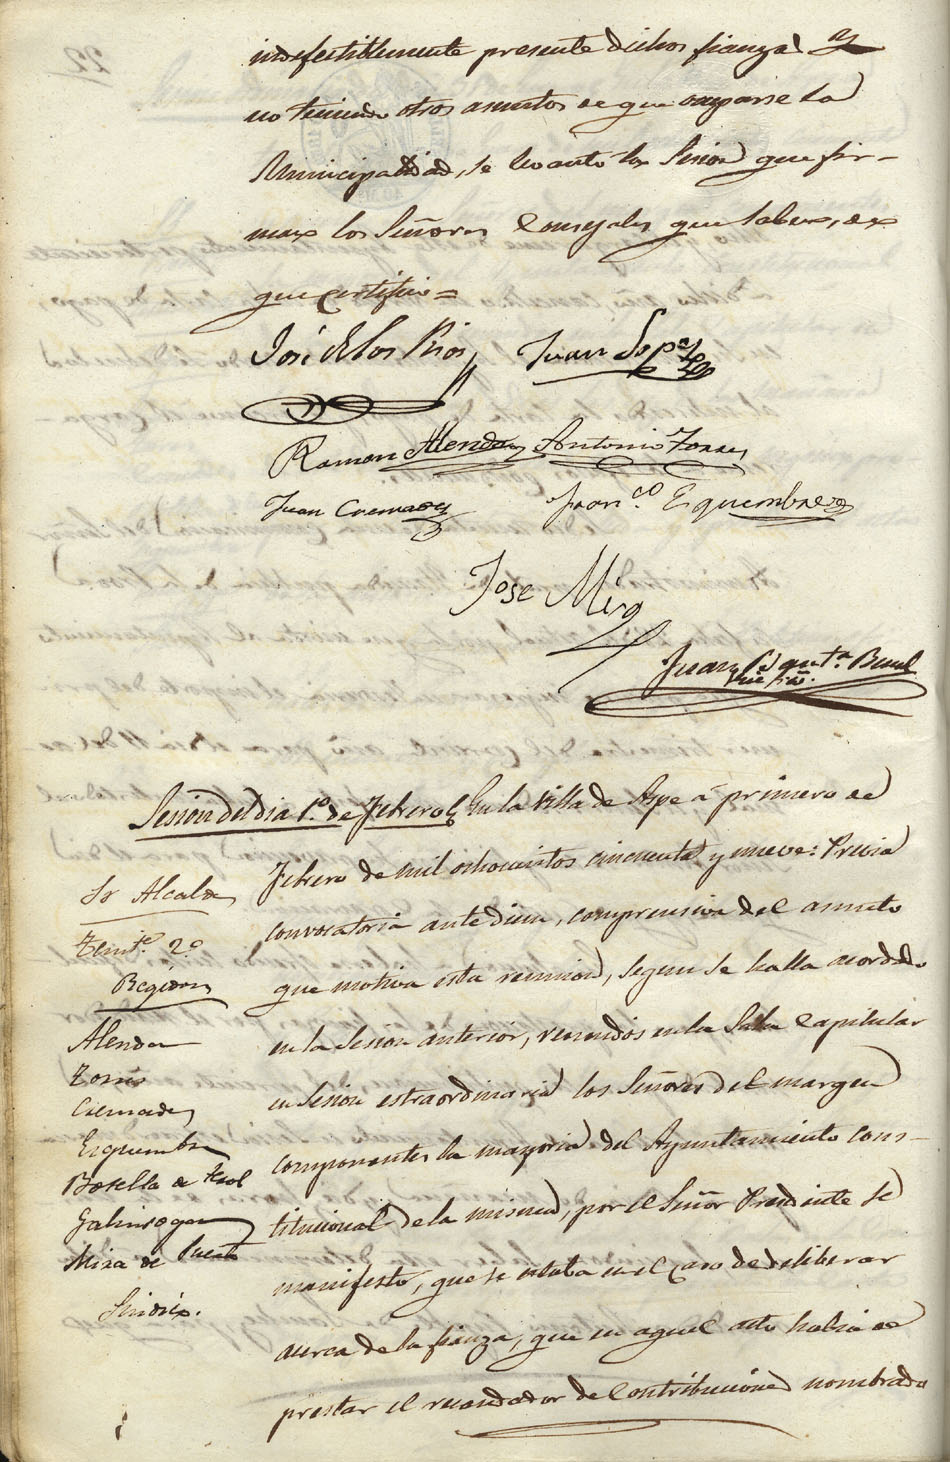 indefectiblemente presente dichas fianzas y
no teniendo otros asuntos de que ocuparse la
Municipalidad, se levantó la Sesion que fir-
man los Señores Concejales que saben, de
que certifico =
José de los Rios Juan Lopez
Ramon Alenda Antonio Torres
Juan Cremades Fran.co Esquembre
Jose Mira
Juan Bautª. Bonel
Srio
Sesion del dia 1º. de Febrero En la Villa de Aspe á primero de
Febrero de mil ochocientos cincuenta y nueve: Previa
convocatoria antediem, comprensiva del asunto
que motiva esta reunion, segun se halla acordado
en la Sesion anterior, reunidos en la Sala Capitular
en Sesion estraordinaria los Señores del margen
componentes la mayoria del Ayuntamiento cons-
titucional de la misma, por el Señor Presidente se
manifestó, que se estaba en el caso de deliberar
acerca de la fianza, que en aquel acto habia de
prestar el recaudador de Contribuciones nombrado
Sr Alcalde
Tente. 2º
Regidores
Alenda
Torres
Cremades
Esquembre
Botella de
Galinsoga
Mira de
Sindico.